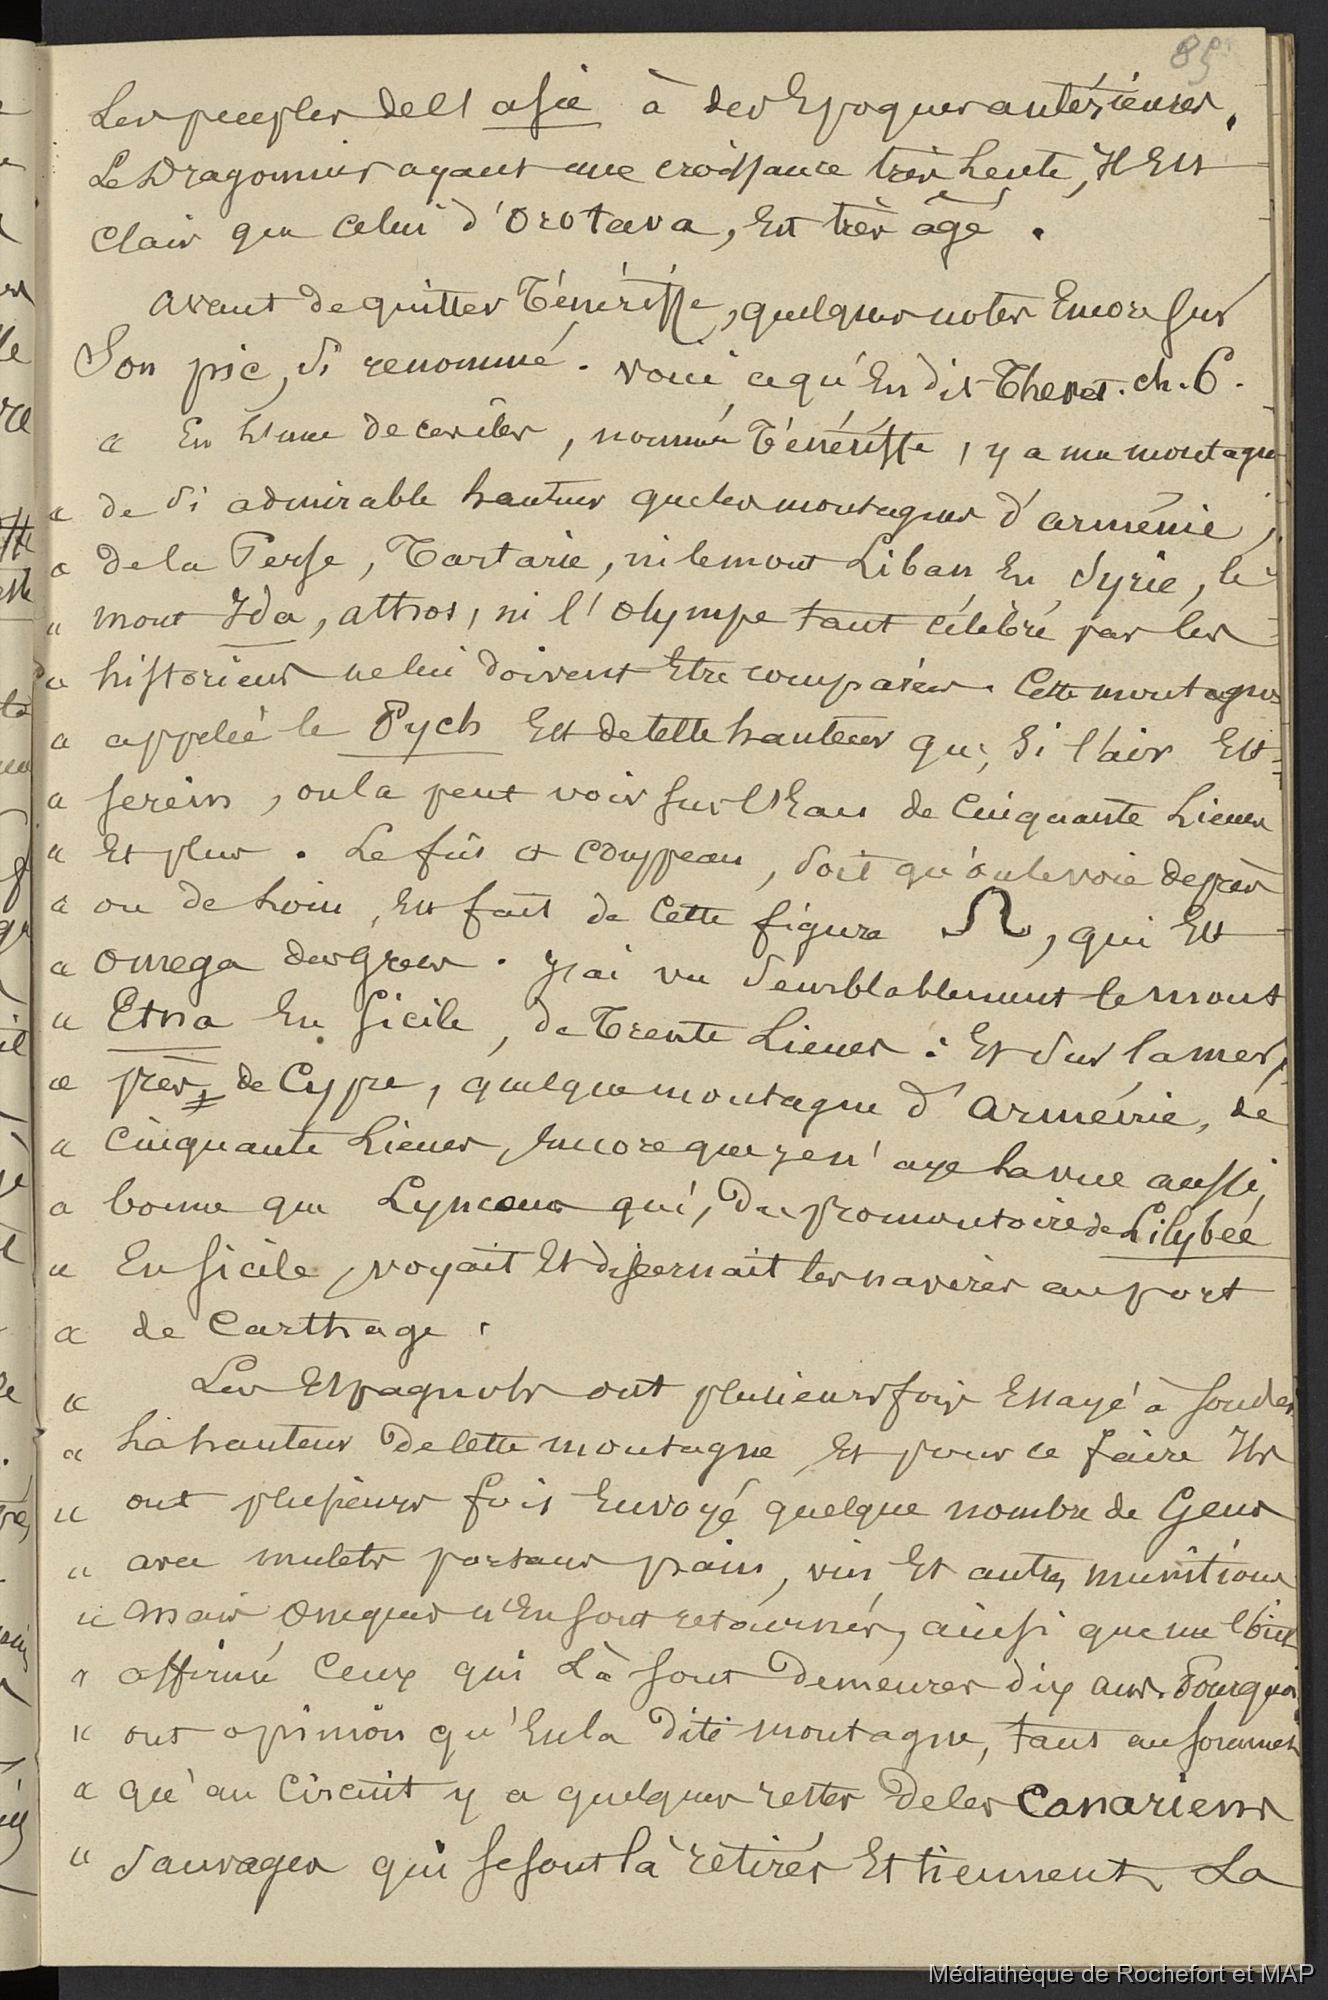 85
Les peuples de l'asie à des Epoques antérieures.
Le Dragonnier ayant une croissance très Lente, Il Est
Clair que Celui d'Orotava, Est très âgé.
avant de quitter Ténériffe, quelques notes Encore sur
Son pic, si renommé. voici ce qu'En dit Thevet. ch. 6.
« En l'une de ces iles, nommée Ténériffe, y a une montagne
« de si admirable hauteur que les montagnes d'arménie,
« de la Perse, Tartarie, ni le mont Liban En Syrie, le
« mont Ida, athos, ni l'Olympe tant célébré par les
« historiens ne lui doivent Etre comparées. Cette montagne
« appelée le Pych Est de telle hauteur que, Si l'air Est
« serein, on la peut voir sur l'Eau de Cinquante Lieues
« Et plus. Le fûs et couppeau, soit qu'on le voie de près
« ou de Loin, Est fait de Cette figure Ω, qui Est
« Omega des Grecs. J'ai vu Semblablement le mont
« Etna En Sicile, de Trente Lieues : Et sur la mer,
« près, de Cypre, quelque montagne d'arménie, de
« Cinquante Lieues, Encore que je n'aye la vue aussi
« bonne que Lynceus qui, Du promontoire de Lilybée
« En Sicile, voyait Et discernait les navires au port
« de Carthage.
« Les Espagnols ont plusieurs fois Essayé à sonder
« La hauteur De Cette montagne Et pour ce faire Ils
« ont plusieurs fois Envoyé quelque nombre de Gens
« avec mulets portans pain, vin Et autres munitions
« Mais Oncques n'En sont retournés, ainsi que me l'ont
« affirmé Ceux qui Là sont Demeurés dix ans. Pourquoi
« ont opinion qu'En la Dite montagne, tant au sommet
« qu'au Circuit y a quelques restes De les Canariens
« Sauvages qui se sont là retirés Et tiennent La
Médiathèque de Rochefort et MAP